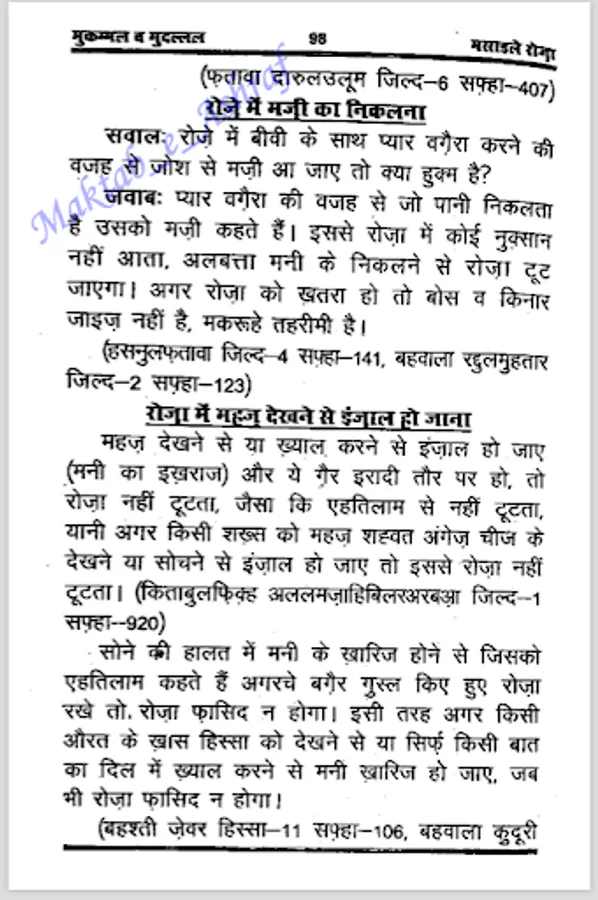 मुकम्मल व मुदल्लल 98 मसाइले रोज़ा
(फ़तावा दारुलउलूम जिल्द-6 सफ़्हा-407)
रोज़े में मज़ी का निकलना
सवालः रोज़े में बीवी के साथ प्यार वग़ैरा करने की
वजह से जोश से मज़ी आ जाए तो क्या हुक्म है?
जवाबः प्यार वग़ैरा की वजह से जो पानी निकलता
है उसको मज़ी कहते हैं। इससे रोज़ा में कोई नुक्सान
नहीं आता, अलबत्ता मनी के निकलने से रोज़ा टूट
जाएगा। अगर रोज़ा को ख़तरा हो तो बोस व किनार
जाइज़ नहीं है, मकरूहे तहरीमी है।
(हसनुलफ़तावा जिल्द-4 सफ़्हा-141, बहवाला रद्दुलमुहतार
जिल्द-2 सफ़्हा-123)
रोज़ा में महज़ देखने से इंज़ाल हो जाना
महज़ देखने से या ख़्याल करने से इंज़ाल हो जाए
(मनी का इख़राज) और ये ग़ैर इरादी तौर पर हो, तो
रोज़ा नहीं टूटता, जैसा कि एहतिलाम से नहीं टूटता,
यानी अगर किसी शख़्स को महज़ शह्वत अंगेज़ चीज के
देखने या सोचने से इंज़ाल हो जाए तो इससे रोज़ा नहीं
टूटता। (किताबुलफ़िक़्ह अललमज़ाहिबिलरअरबआ़ जिल्द-1
सफ़्हा-920)
सोने की हालत में मनी के ख़ारिज होने से जिसको
एहतिलाम कहते हैं अगरचे बग़ैर गुस्ल किए हुए रोज़ा
रखे तो रोज़ा फ़ासिद न होगा। इसी तरह अगर किसी
औरत के ख़ास हिस्सा को देखने से या सिर्फ़ किसी बात
का दिल में ख़्याल करने से मनी ख़ारिज हो जाए, जब
भी रोज़ा फ़ासिद न होगा।
(बहश्ती ज़ेवर हिस्सा-11 सफ़्हा-106, बहवाला कुदूरी
Maktab_e_Ashraf